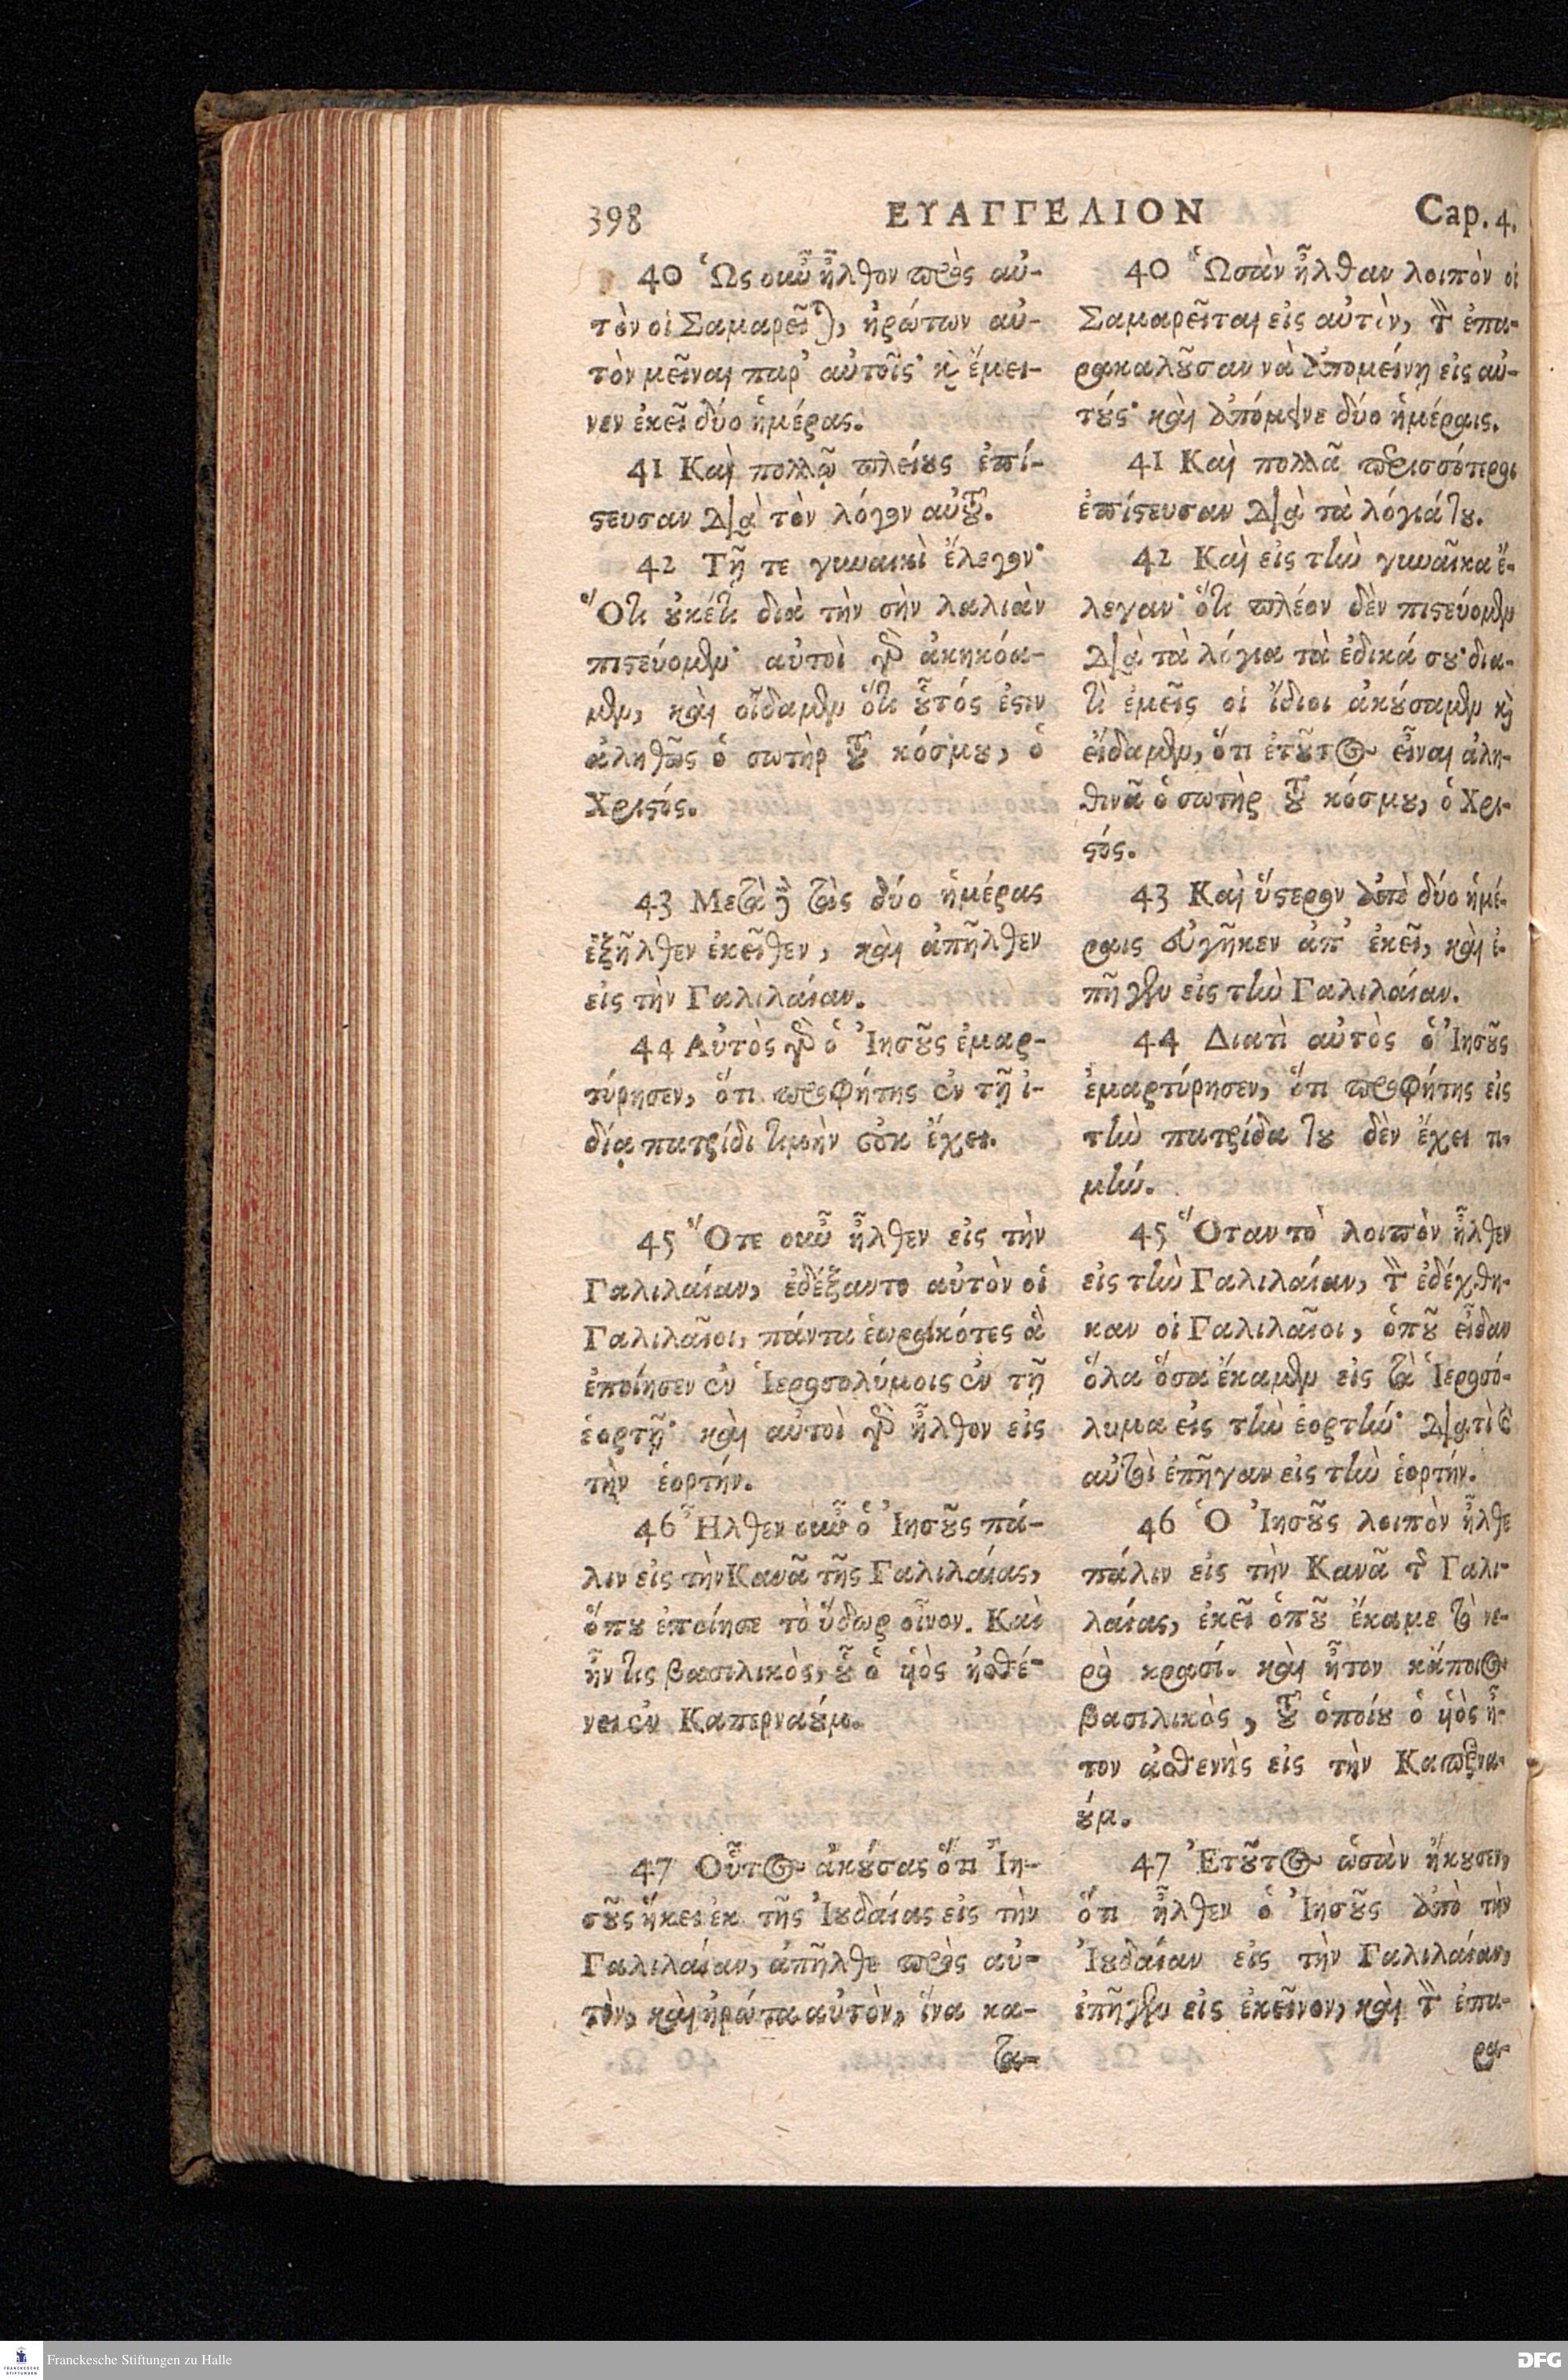 398 ΕΥΑΓΓΕΛΙΟΝ Cap. 4.
40 Ὡς οὖν ἦλθον πρὸς αὐ-
τὸν οἱ Σαμαρεῖται, ἠρώτων αὐ-
τὸν μεῖναι παρ' αὐτοῖς· καὶ ἔμει-
νεν ἐκεῖ δύο ἡμέρας.
41 Καὶ πολλῷ πλείους ἐπί-
στευσαν διὰ τὸν λόγον αὐτοῦ.
42 Τῇ τε γυναικὶ ἔλεγον·
Ὅτι οὐκέτι διὰ τὴν σὴν λαλιὰν
πιστεύομεν· αὐτοὶ γὰρ ἀκηκόα-
μεν, καὶ οἴδαμεν ὅτι οὗτός ἐστιν
ἀληθῶς ὁ σωτὴρ τοῦ κόσμου, ὁ
Χριστός.
43 Μετὰ δὲ τὰς δύο ἡμέρας
ἐξῆλθεν ἐκεῖθεν, καὶ ἀπῆλθεν
εἰς τὴν Γαλιλαίαν.
44 Αὐτὸς γὰρ ὁ Ἰησοῦς ἐμαρ-
τύρησεν, ὅτι προφήτης ἐν τῇ ἰ-
δίᾳ πατρίδι τιμὴν οὐκ ἔχει.
45 Ὅτε οὖν ἦλθεν εἰς τὴν
Γαλιλαίαν, ἐδέξαντο αὐτὸν οἱ
Γαλιλαῖοι, πάντα ἑωρακότες ἃ
ἐποίησεν ἐν Ἱεροσολύμοις ἐν τῇ
ἑορτῇ· καὶ αὐτοὶ γὰρ ἦλθον εἰς
τὴν ἑορτήν.
46 Ἦλθεν οὖν ὁ Ἰησοῦς πά-
λιν εἰς τὴν Κανᾶ τῆς Γαλιλαίας,
ὅπου ἐποίησε τὸ ὕδωρ οἶνον. Καὶ
ἦν τις βασιλικὸς, οὗ ὁ υἱὸς ἠσθέ-
νει ἐν Καπερναούμ.
47 Οὗτος ἀκούσας ὅτι Ἰη-
σοῦς ἥκει ἐκ τῆς Ἰουδαίας εἰς τὴν
Γαλιλαίαν, ἀπῆλθε πρὸς αὐ-
τὸν, καὶ ἠρώτα αὐτὸν, ἵνα κα-
τα-
40 Ὡσὰν ἦλθαν λοιπὸν οἱ
Σαμαρεῖται εἰς αὐτὸν, τὸν ἐπα-
ρακαλοῦσαν νὰ ἀπομείνῃ εἰς αὐ-
τούς· καὶ ἀπόμεινε δύο ἡμέραις.
41 Καὶ πολλᾶ περισσότεροι
ἐπίστευσαν διὰ τὰ λόγιά του.
42 Καὶ εἰς τὴν γυναῖκα ἔ-
λεγαν· ὅτι πλέον δὲν πιστεύομεν
διὰ τὰ λόγια τὰ ἐδικά σου· δια-
τὶ ἐμεῖς οἱ ἴδιοι ἀκούσαμεν καὶ
εἴδαμεν, ὅτι ἐτοῦτος εἶναι ἀλη-
θινᾶ ὁ σωτὴρ τοῦ κόσμου, ὁ Χρι-
στός.
43 Καὶ ὕστερον ἀπὸ δύο ἡμέ-
ραις εὐγῆκεν ἀπ' ἐκεῖ, καὶ ἐ-
πῆγεν εἰς τὴν Γαλιλαίαν.
44 Διατὶ αὐτὸς ὁ Ἰησοῦς
ἐμαρτύρησεν, ὅτι προφήτης εἰς
τὴν πατρίδα του δὲν ἔχει τι-
μήν.
45 Ὅταν τὸ λοιπὸν ἦλθεν
εἰς τὴν Γαλιλαίαν, τὸν ἐδέχθη-
καν οἱ Γαλιλαῖοι, ὁποῦ εἶδαν
ὅλα ὅσα ἔκαμεν εἰς τὰ Ἱεροσό-
λυμα εἰς τὴν ἑορτήν· διατὶ καὶ
αὐτοὶ ἐπῆγαν εἰς τὴν ἑορτήν.
46 Ὁ Ἰησοῦς λοιπὸν ἦλθε
πάλιν εἰς τὴν Κανᾶ τῆς Γαλι-
λαίας, ἐκεῖ ὁποῦ ἔκαμε τὸ νε-
ρὸ κρασί. καὶ ἦτον κάποιος
βασιλικὸς, τοῦ ὁποίου ὁ υἱὸς ἦ-
τον ἀσθενὴς εἰς τὴν Καπερνα-
ούμ.
47 Ἐτοῦτος ὡσὰν ἤκουσεν,
ὅτι ἦλθεν ὁ Ἰησοῦς ἀπὸ τὴν
Ἰουδαίαν εἰς τὴν Γαλιλαίαν,
ἐπῆγεν εἰς ἐκεῖνον, καὶ τὸν ἐπα-
ρα-
Franckesche Stiftungen zu Halle
DFG